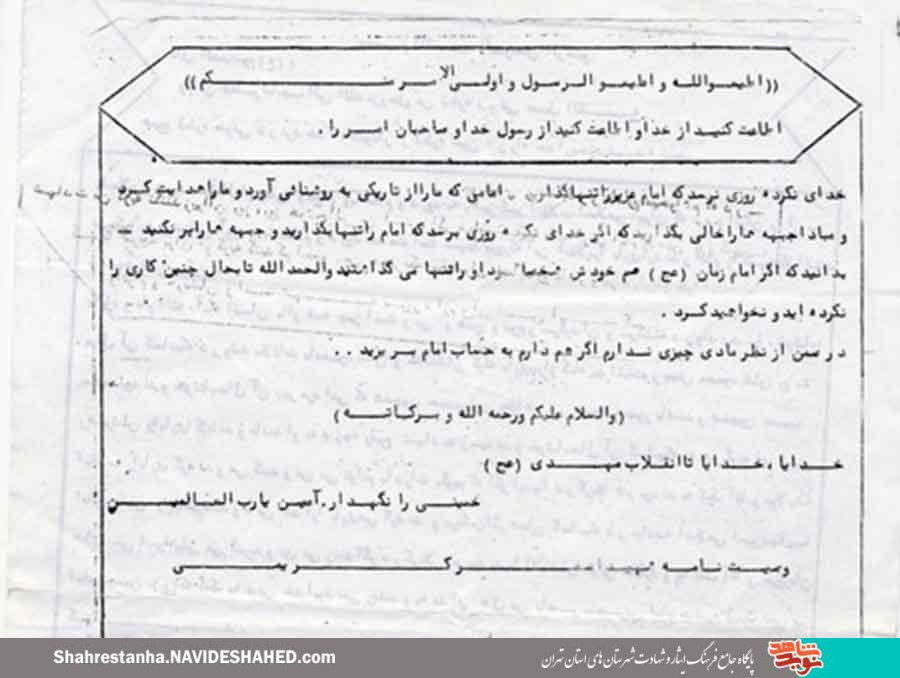 ((اطیعوالله و اطیعو الرسول و اولی الامر منکم))
اطاعت کنید از خدا و اطاعت کنید از رسول خدا و صاحبان امر را .
خدای نکرده روزی نرسد که امام عزیز راتنهابگذارید امامی که مارا از تاریکی به روشنائی آورد و ماراهدایت کرد
و مبادا جبهه هاراخالی بگذارید که اگر خدای نکرده روزی برسد که امام راتنهابگذارید و جبهه هارا پر نکنید
بدانید که اگر امام زمان (عج) هم خودش شخصا بود او راتنها می گذاشتید والحمد الله تابحال چنین کاری را
نکرده اید و نخواهید کرد .
در ضمن از نظر مادی چیزی ندارم اگر هم دارم به حساب امام بریزید . .
(والسلام علیکم ورحمه الله و برکاته)
خدایا ، خدایا تا انقلاب مهدی (عج)
خمینی را نگهدار . آمین یارب العالمین
وصیت نامه شهید اصغر کریمی
Shahrestanha.NAVIDESHAHED.com
پایگاه جامع فرهنگ ایثار و شهادت شهرستان های استان تهران
نوید شاهد